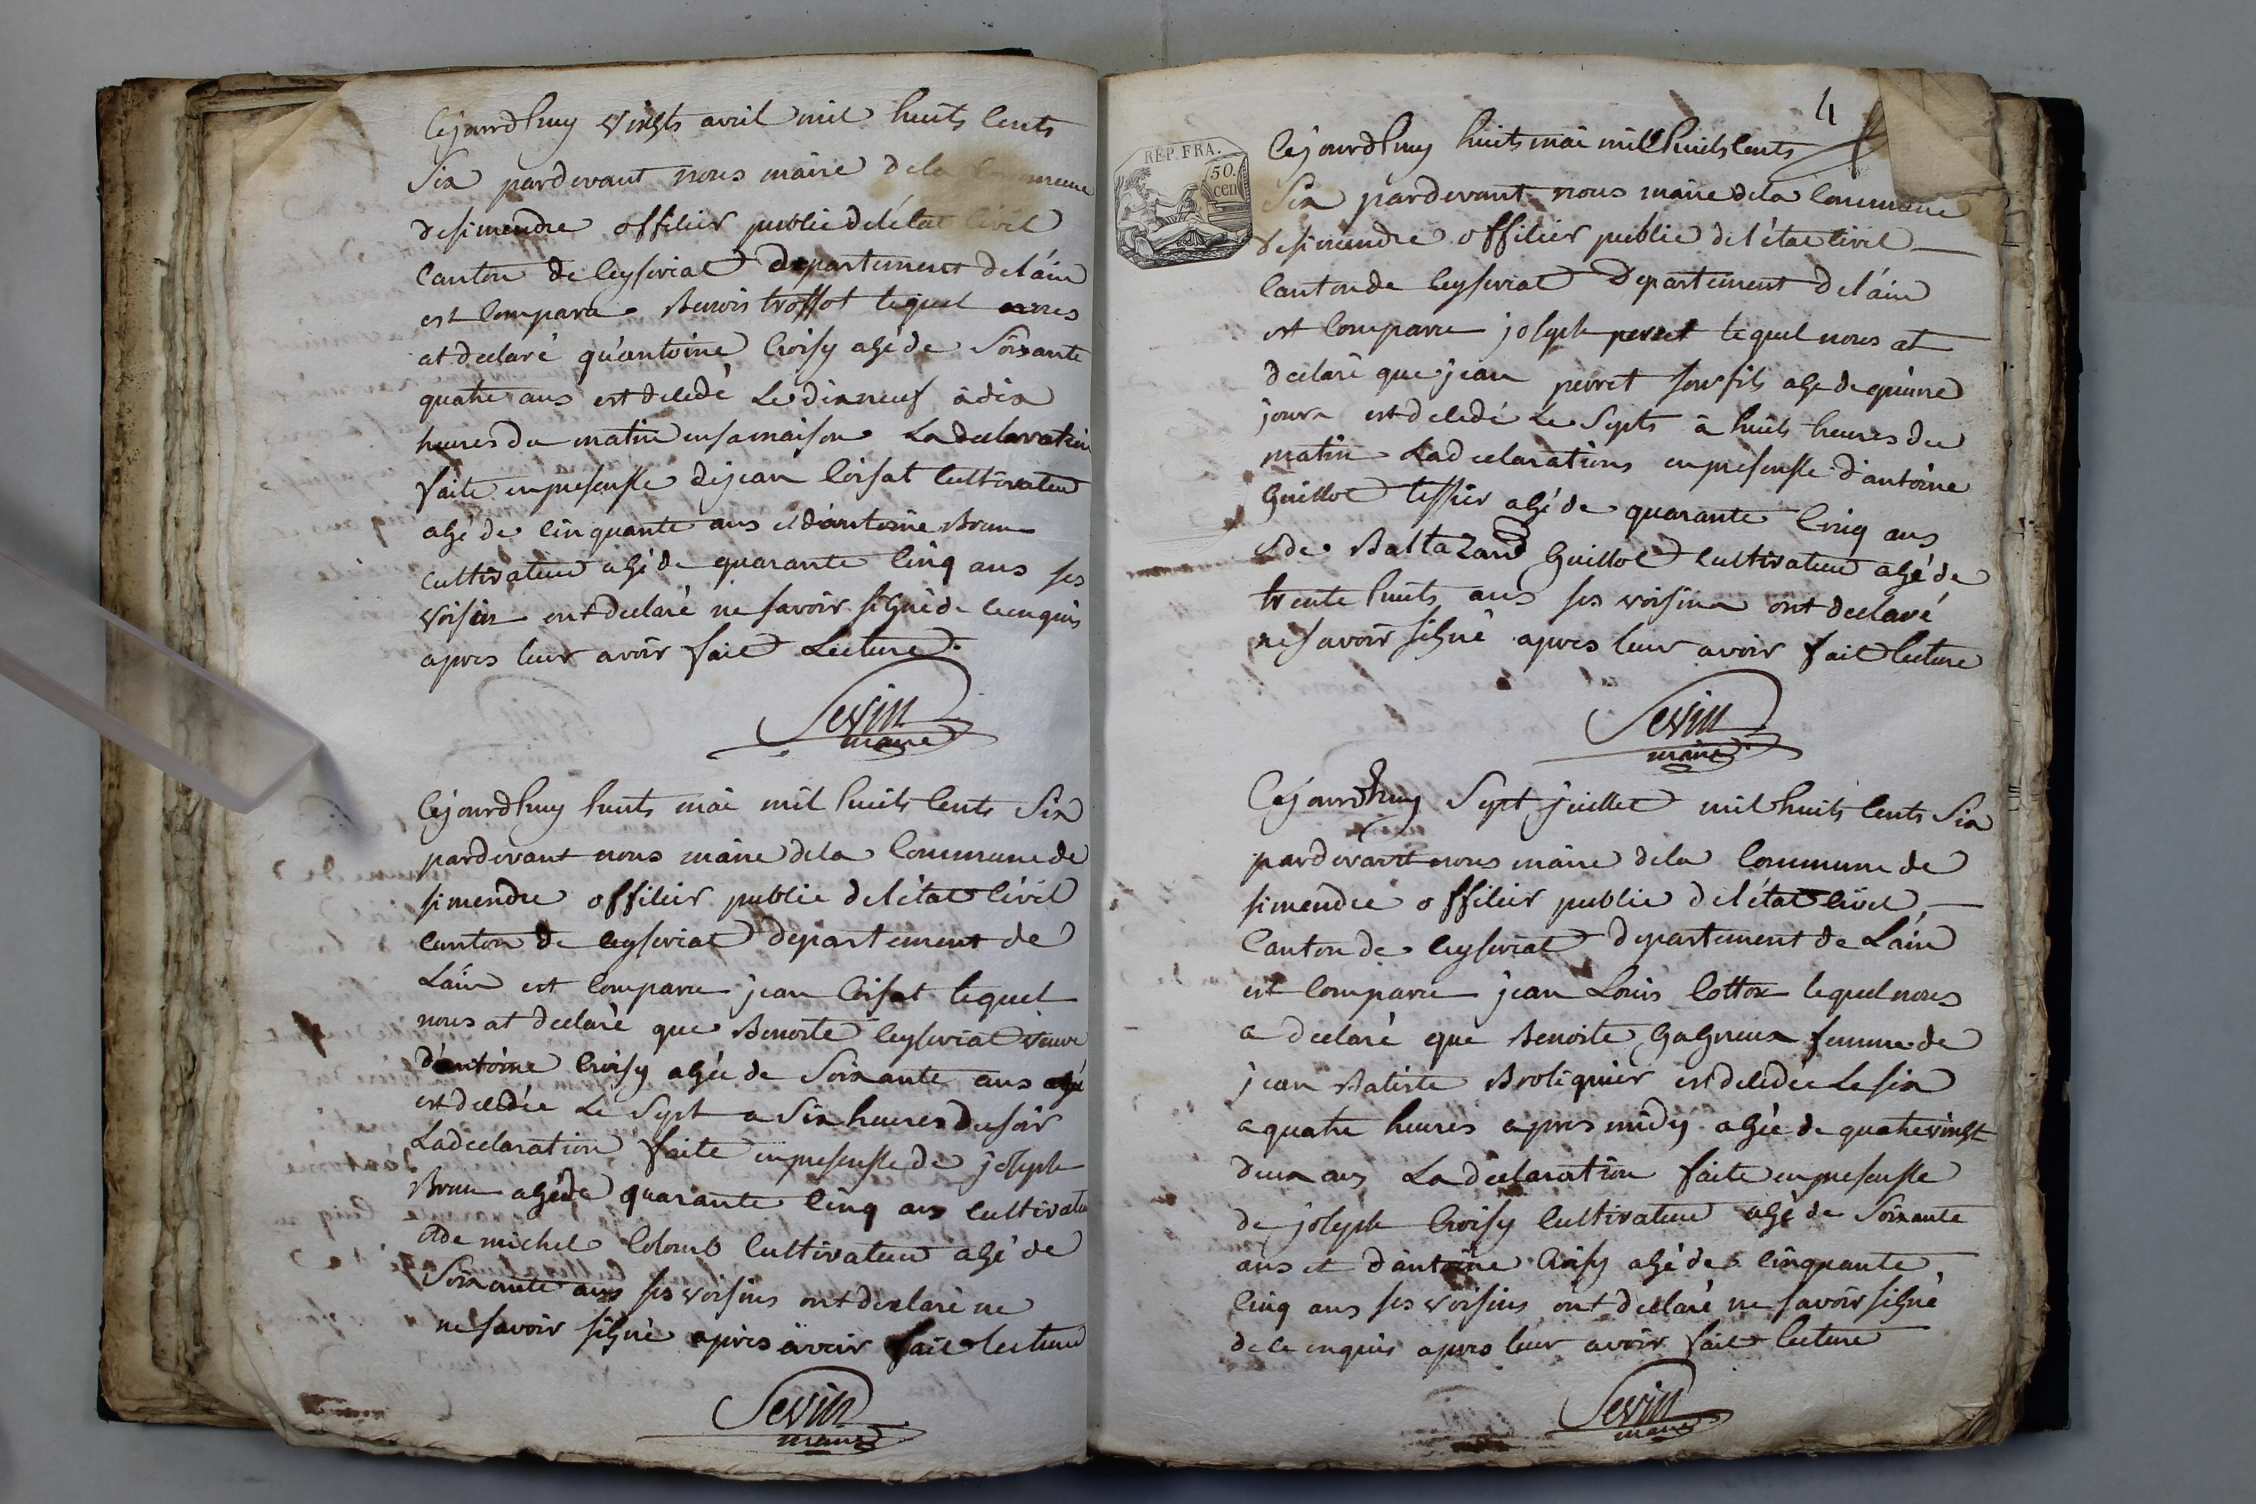 Cejourdhuy vingts avril mil huits cents
Six pardevant nous maire dela Commune
desimendre officier public de létat civil
Canton de Ceyseriat departement delain
est Comparu Benois troffot lequel nous
at declaré quantoine Croisy agé de Soixante
quatre ans est decedé Le dixneuf à dix
heures du matin ensamaison La declaration
faite enpresensse dejean Coisat Cultivateur
agé de Cinquante ans et dantoine Brun
Cultivateur agé de quarante Cinq ans ses
voisin ont declaré ne savoir signé de cenquis
apres leur avoir fait Lecture.
Sevin
maire
Cejourdhuy huits mai mil huits Cents Six
pardevant nous maire dela Commune de
simendre officier public delétat Civil
Canton de Ceyseriat departement de
Lain est Comparu jean Coisat lequel
nous at declaré que Benoite Ceyseriat veuve
dantoine Croisy agée de Soixante ans agé
est decedée Le Sept a Six heures Dusoir
Ladeclaration faite enpresensse de joseph
Brun agé de quarante Cinq ans Cultivateu
et de michel Colomb Cultivateur agé de
Soixante ans ses voisins ont declaré ne
ne savoir signé apres avoir fait lecture
Sevin
maire
4
REP. FRA.
50.
cen
Cejourdhuy huits mai mil huits cents
Six pardevant nous maire dela Commune
desimendre officier public de létat civil
Canton de Ceyseriat Departement Delain
est Comparu joseph perret lequel nous at
declaré que jean perret son fils agé de quinze
jours est decedé Le Septs à huits heures du
matin Ladeclarations enpresensse dantoine
Guillot tessier agé de quarante Cinq ans
et de Baltazard Guillot Cultivateur agé de
trente huits ans ses voisins ont declaré
ne savoir signé apres leur avoir fait lecture
Sevin
maire
Cejourdhuy Sept juillet mil huits Cents Six
pardevant nous maire dela Commune de
simendre officier public de létat civil
Canton de Ceyseriat departement de Lain
est Comparu jean Louis Cotton lequel nous
a declaré que Benoite Gagneux femme de
jean Batiste Broliquier est decedée Le six
a quatre heures apres midy agée de quatrevingt
deux ans La declaration faite enpresensse
de joseph Croisy Cultivateur agé de Soixante
ans et dantoine Croisy agé de Cinquante
Cinq ans ses voisins ont declaré ne savoir signé
de ce enquis apres leur avoir fait lecture
Sevin
maire